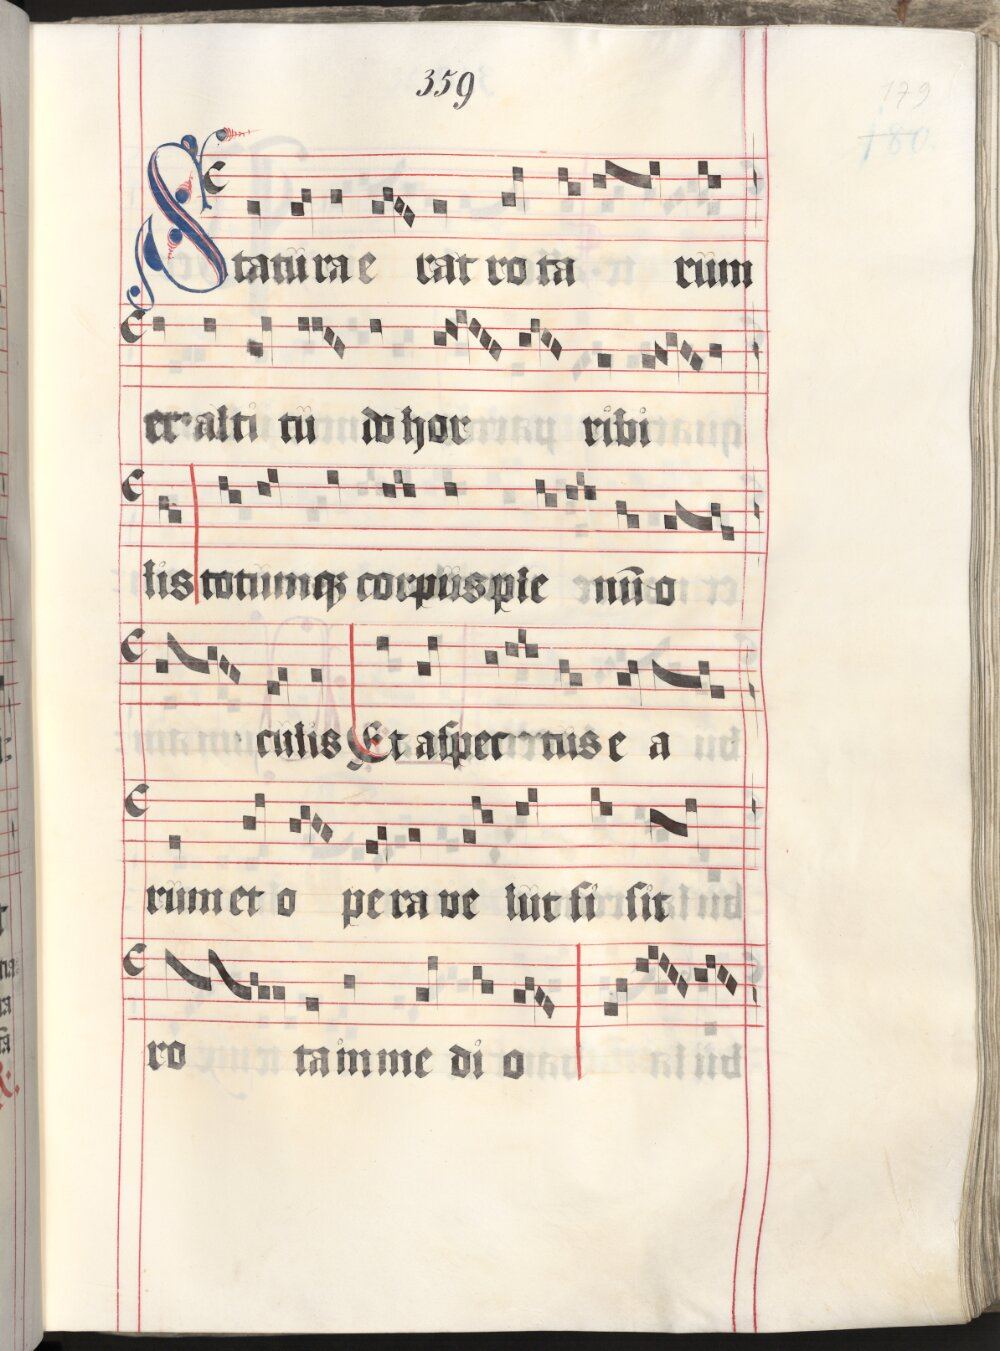 359
179
180.
Staturae rat rota rum
et alti tu do hor ribi
lis totumqȝ corpus ple nu o
culis Et aspectus e a
rum et o pera ve lut si sit
ro ta in me di o